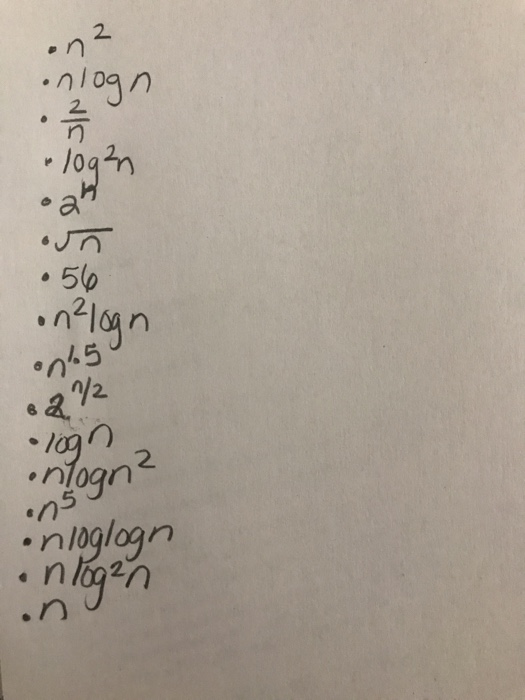 • n²
• nlogn
• 2/n
• log²n
• 2ⁿ
• √n
• 56
• n²logn
• n^1.5
• 2^n/2
• logn
• nlogn²
• n⁵
• nloglogn
• nlog²n
• n